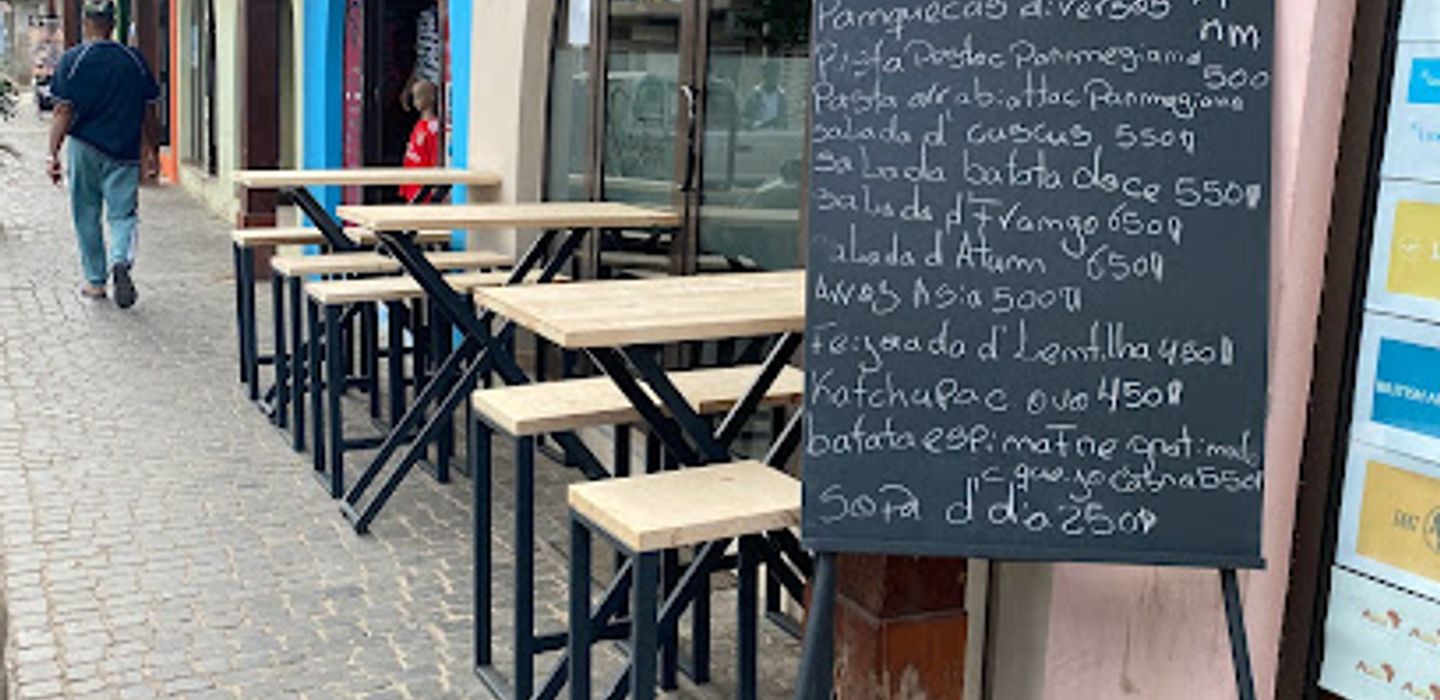 Pamquecas diversos
nm
Pasta Pastac Parmmegiana 500
Pasta arrabiattac Parmegiano
salada d' cuscus 550
Salada batata doce 550
Salada d' Frango 650
salada d' Atum 650
Arroz Asia 500
Feijoada d' Lemtilha 450
Katchupac ovo 450
batata espimafne gratimad
c queyo cabra 550
Sopa d' dia 250